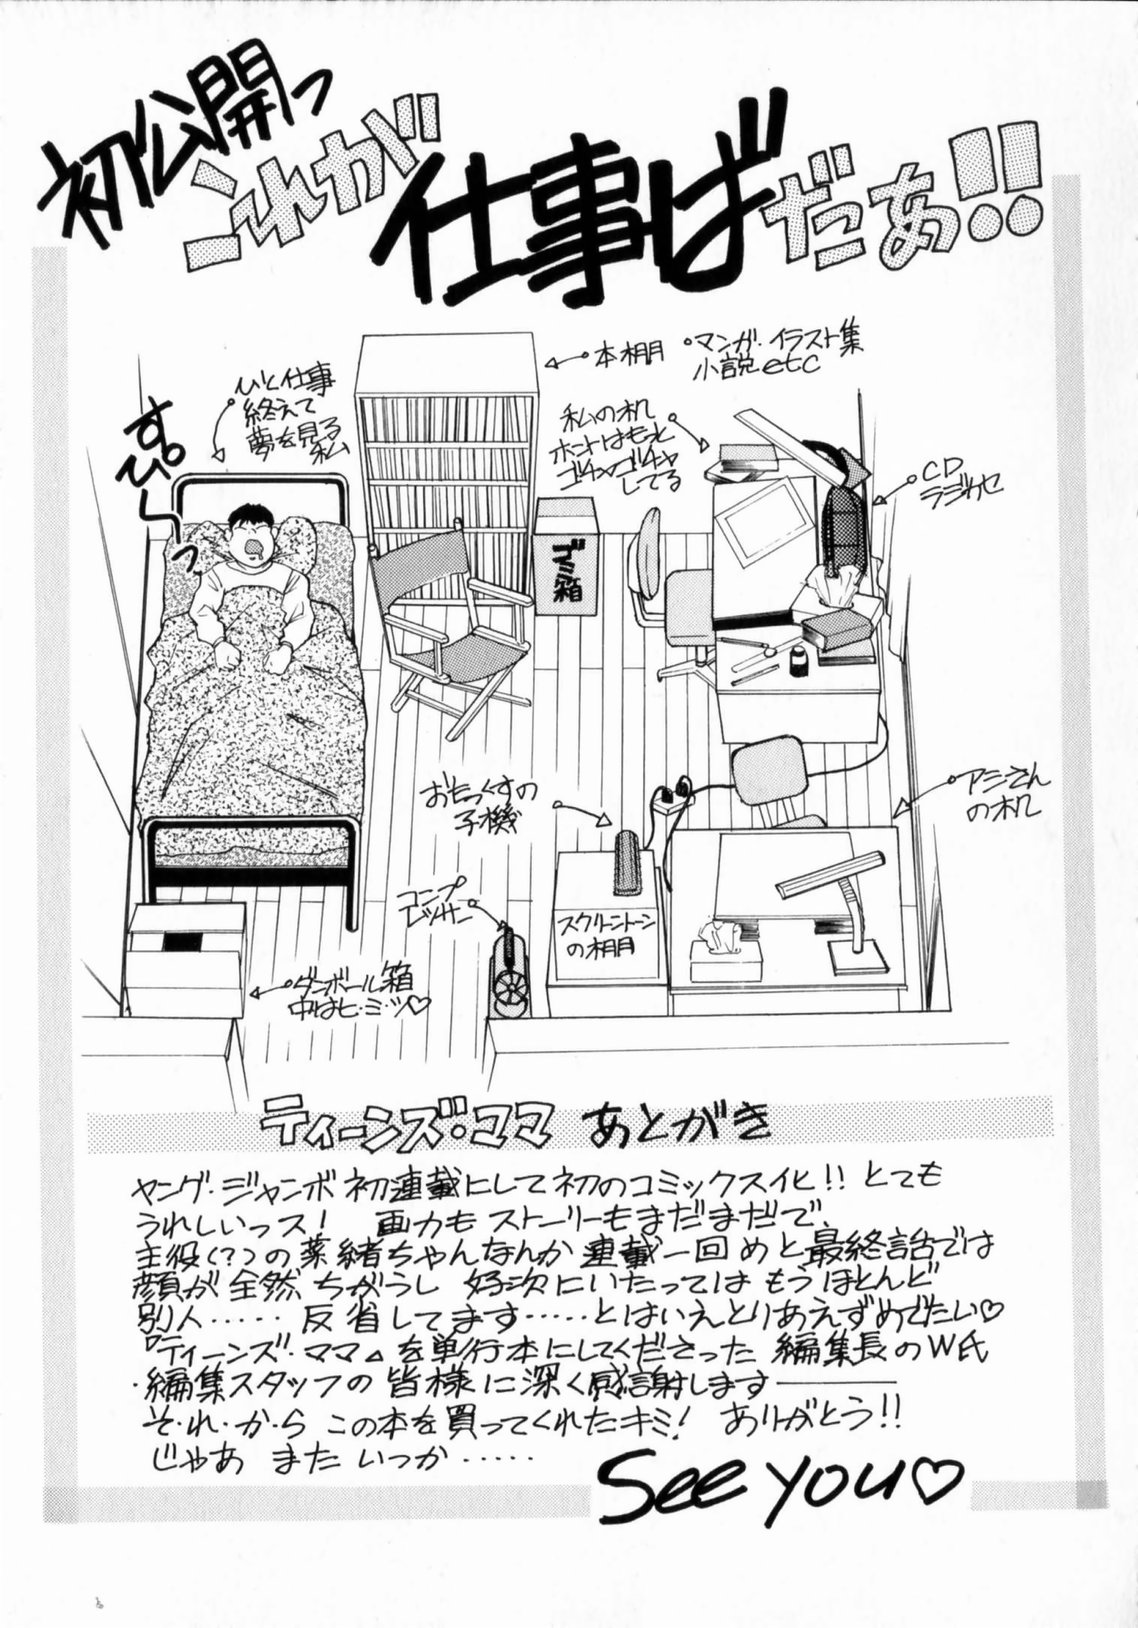 初公開っ
これが
仕事ば
だあ!!
本棚
・マンガ・イラスト集
小説etc
ひと仕事
終えて
夢を見る
私
すぴ〜っ
私の机
ホントはもっと
ゴチャゴチャ
してる
CD
ラジカセ
ゴミ箱
おもっくすの
子機
アシさん
の机
コンプ
レッサー
スクリーントーン
の棚
ダンボール箱
中はヒ・ミ・ツ♡
ティーンズ・ママ あとがき
ヤング・ジャンボ初連載にして初のコミックス化!! とても
うれしいっス! 画力もストーリーもまだまだで、
主役(?)の薬緒ちゃんなんか連載一回めと最終話では
顔が全然ちがうし 好次にいたってはもうほとんど
別人‥‥‥反省してます‥‥‥とはいえとりあえずめでたい♡
『ティーンズ・ママ』を単行本にしてくださった編集長のW氏
・編集スタッフの皆様に深く感謝します――
そ・れ・か・ら この本を買ってくれたキミ! ありがとう!!
じゃあ また いつか‥‥‥
See you♡